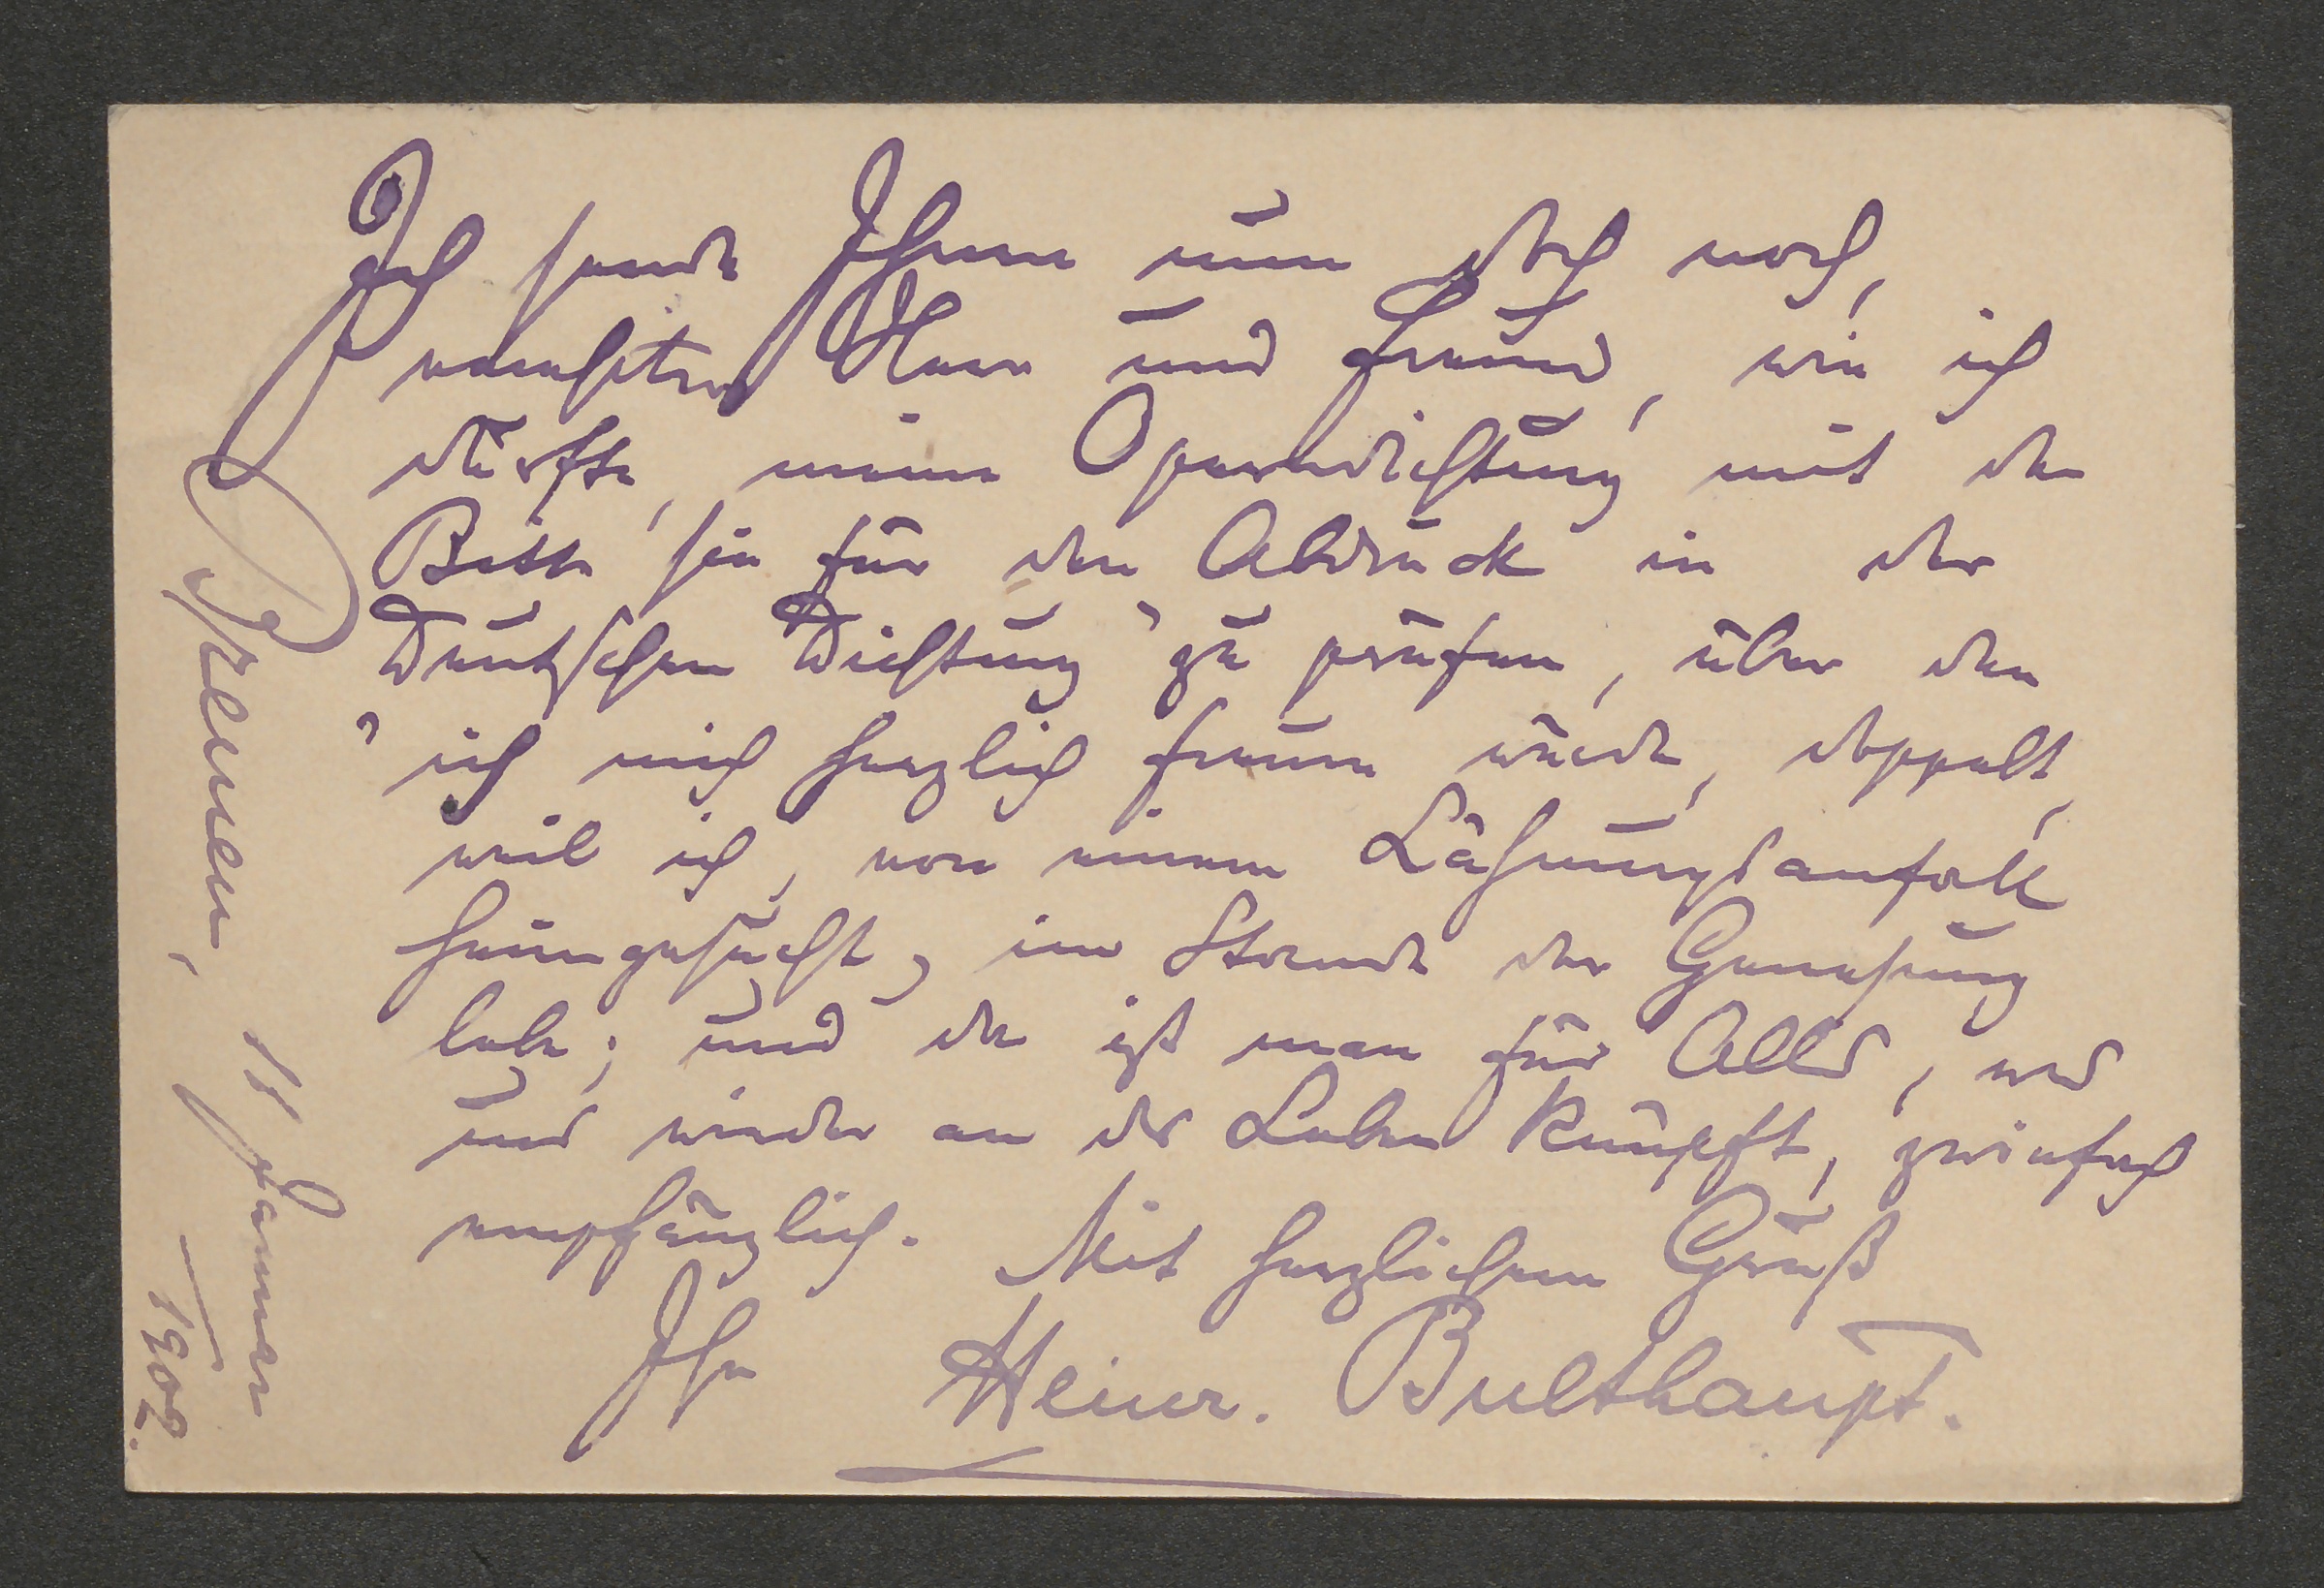 Bremen, 11 Januar
1902.
Ich sende Ihnen nun doch noch,
verehrter Herr und Freund, wie ich
dürfte, meine Operndichtung mit der
Bitte sie für den Abdruck in der
„Deutschen Dichtung“ zu prüfen, über den
ich mich herzlich freuen würde, doppelt,
weil ich, von einem Lähmungsanfall
heimgesucht, im Stande der Genesung
lebe; und da ist man für Alles, was
uns wieder an das Leben knüpft, zwiefach
empfänglich. Mit herzlichem Gruß
Ihr Heinr. Bulthaupt.